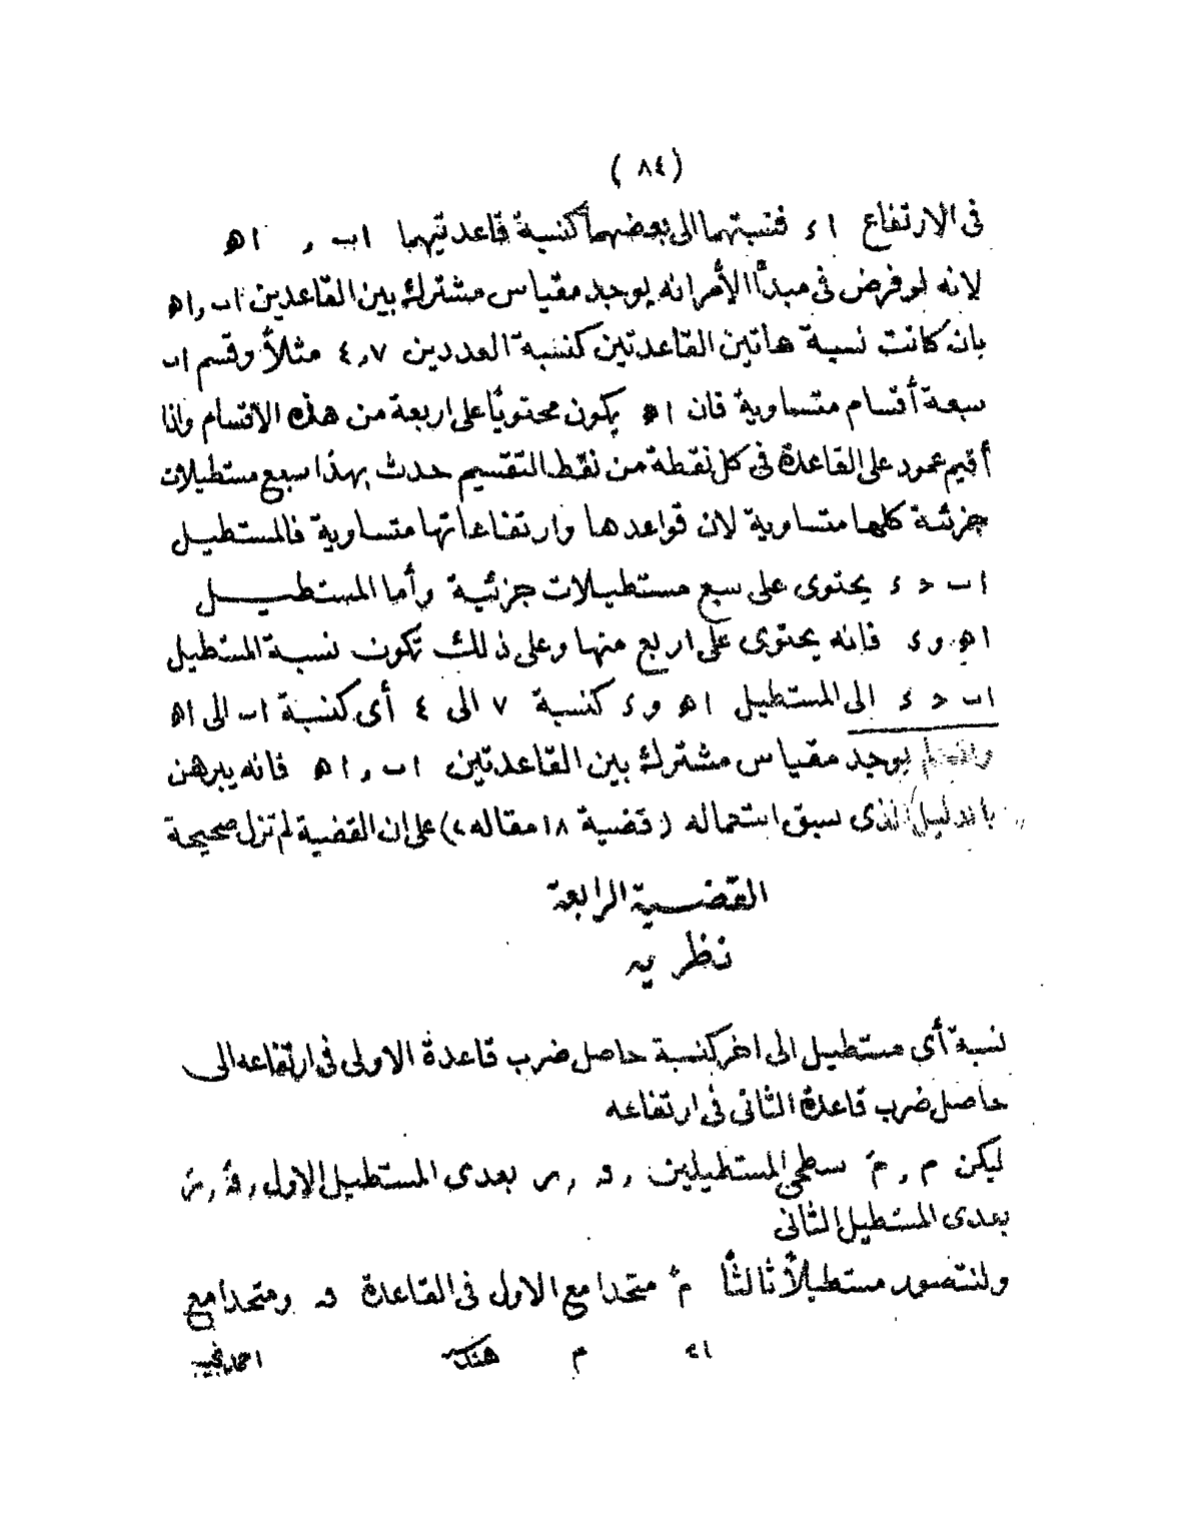 ( ٨٤ )
فى الارتفاع ا ء فنسبتهما الى بعضهما كنسبة قاعدتيهما اب و اھ
لانه لو فرض فى مبدأ الأمر انه يوجد مقياس مشترك بين القاعدين اب و اھ
بان كانت نسبة هاتين القاعدتين كنسبة العددين ٧ و ٤ مثلاً وقسم اب
سبعة أقسام متساوية فان اھ يكون محتويًا على اربعة من هذه الاقسام واذا
أقيم عمود على القاعدة فى كل نقطة من نقط التقسيم حدث بهذا سبع مستطيلات
جزئية كلها متساوية لان قواعدها وارتفاعاتها متساوية فالمستطيل
اب د ء يحتوى على سبع مستطيلات جزئية وأما المستطيل
اھ و ء فانه يحتوى على اربع منها وعلى ذلك تكون نسبة المستطيل
اب د ء الى المستطيل اھ و ء كنسبة ٧ الى ٤ أى كنسبة اب الى اھ
يوجد مقياس مشترك بين القاعدتين اب و اھ فانه يبرهن
بالدليل الذى سبق استعماله (قضية ١٨ مقاله ٢) على ان القضية لم تزل صحيحة
القضية الرابعة
نظريه
نسبة أي مستطيل الى اخر كنسبة حاصل ضرب قاعدة الاولى فى ارتفاعه الى
حاصل ضرب قاعدة الثانى فى ارتفاعه
ليكن م و مَ سطحى المستطيلين و ق و ر بعدى المستطيل الاول و قَ و رَ
بعدى المستطيل الثانى
ولنتصور مستطيلاً ثالثاً مً متحدا مع الاول فى القاعدة ق ومتحدا مع
م هندسه احمد نجيب